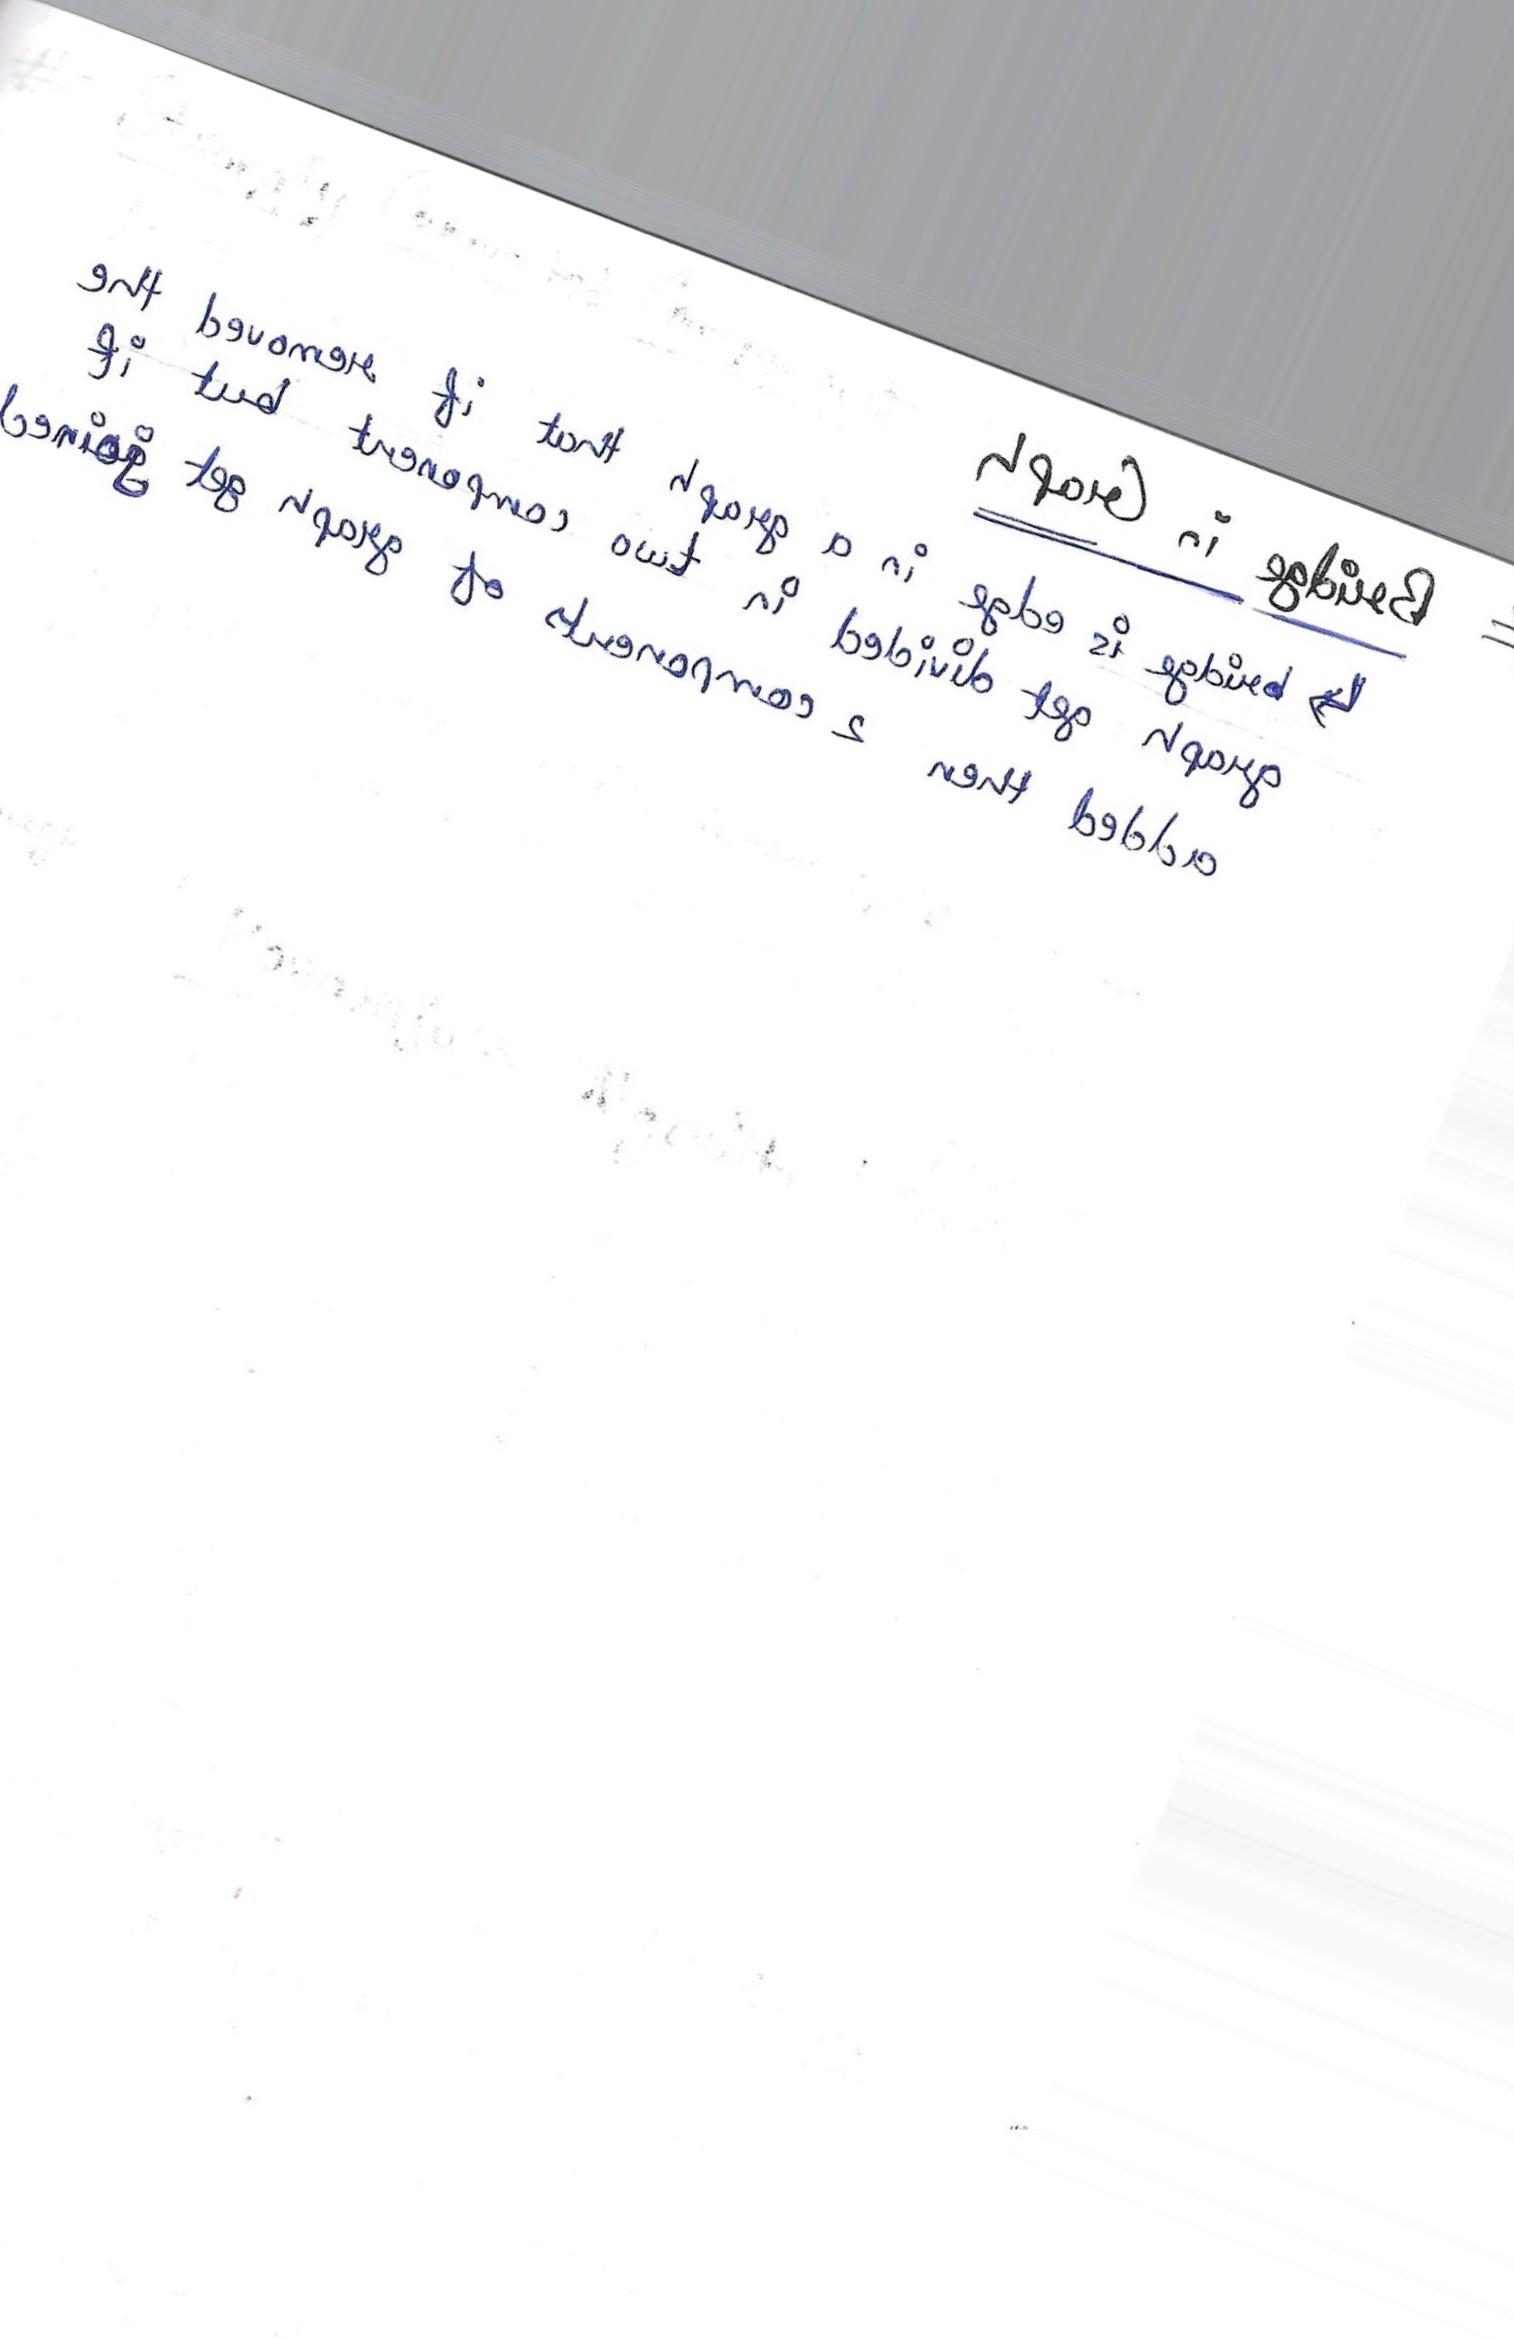 Bridge in Graph
↳ bridge is edge in a graph that if removed the
graph get divided in two component but if
added then 2 components of graph get joined